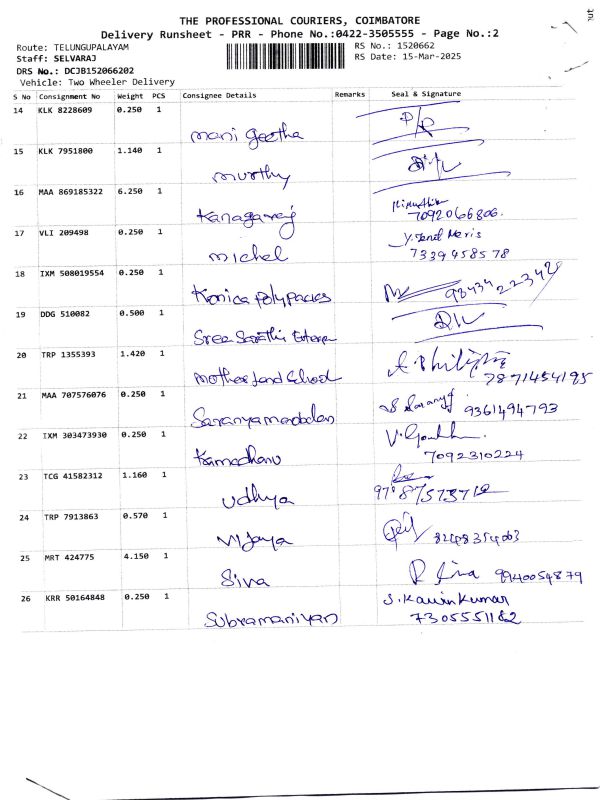 THE PROFESSIONAL COURIERS, COIMBATORE
Delivery Runsheet - PRR - Phone No.:0422-3505555 - Page No.:2
Route: TELUNGUPALAYAM RS No.: 1520662
Staff: SELVARAJ RS Date: 15-Mar-2025
DRS No.: DCJB152066202
Vehicle: Two Wheeler Delivery
S No Consignment No Weight PCS Consignee Details Remarks Seal & Signature
14 KLK 8228609 0.250 1
mani geetha
15 KLK 7951800 1.140 1
murthy
16 MAA 869185322 6.250 1
Kanagaraj 7092066806.
17 VLI 209498 0.250 1
michel 7339458578
18 IXM 508019554 0.250 1
Konica polypacks 9843422342
19 DDG 510082 0.500 1
Sree Sarathi Enterpr
20 TRP 1355393 1.420 1
motherland School 7871454195
21 MAA 707576076 0.250 1
Saranyamandalan 9361494793
22 IXM 303473930 0.250 1
Kamadhanu 7092310224
23 TCG 41582312 1.160 1
udhya
24 TRP 7913863 0.570 1
Vijaya 8248354003
25 MRT 424775 4.150 1
Siva R Siva 9940054879
26 KRR 50164848 0.250 1 S. KavinKumar
Subramaniyan 7305551182